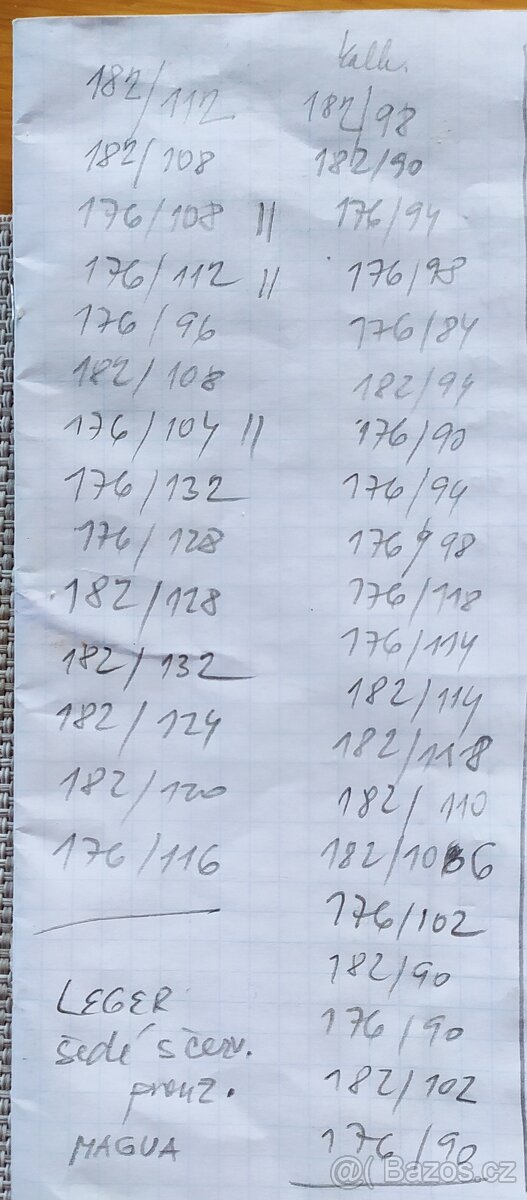 182/112
182/108
176/108 ||
176/112 ||
176/96
182/108
176/104 ||
176/132
176/128
182/128
182/132
182/124
182/120
176/116
LEGER
šedé s červ.
prouž.
MAGUA
kalh.
182/98
182/90
176/94
176/98
176/84
182/94
176/90
176/94
176/98
176/118
176/114
182/114
182/118
182/110
182/106
176/102
182/90
176/90
182/102
176/90
@( Bazos.cz